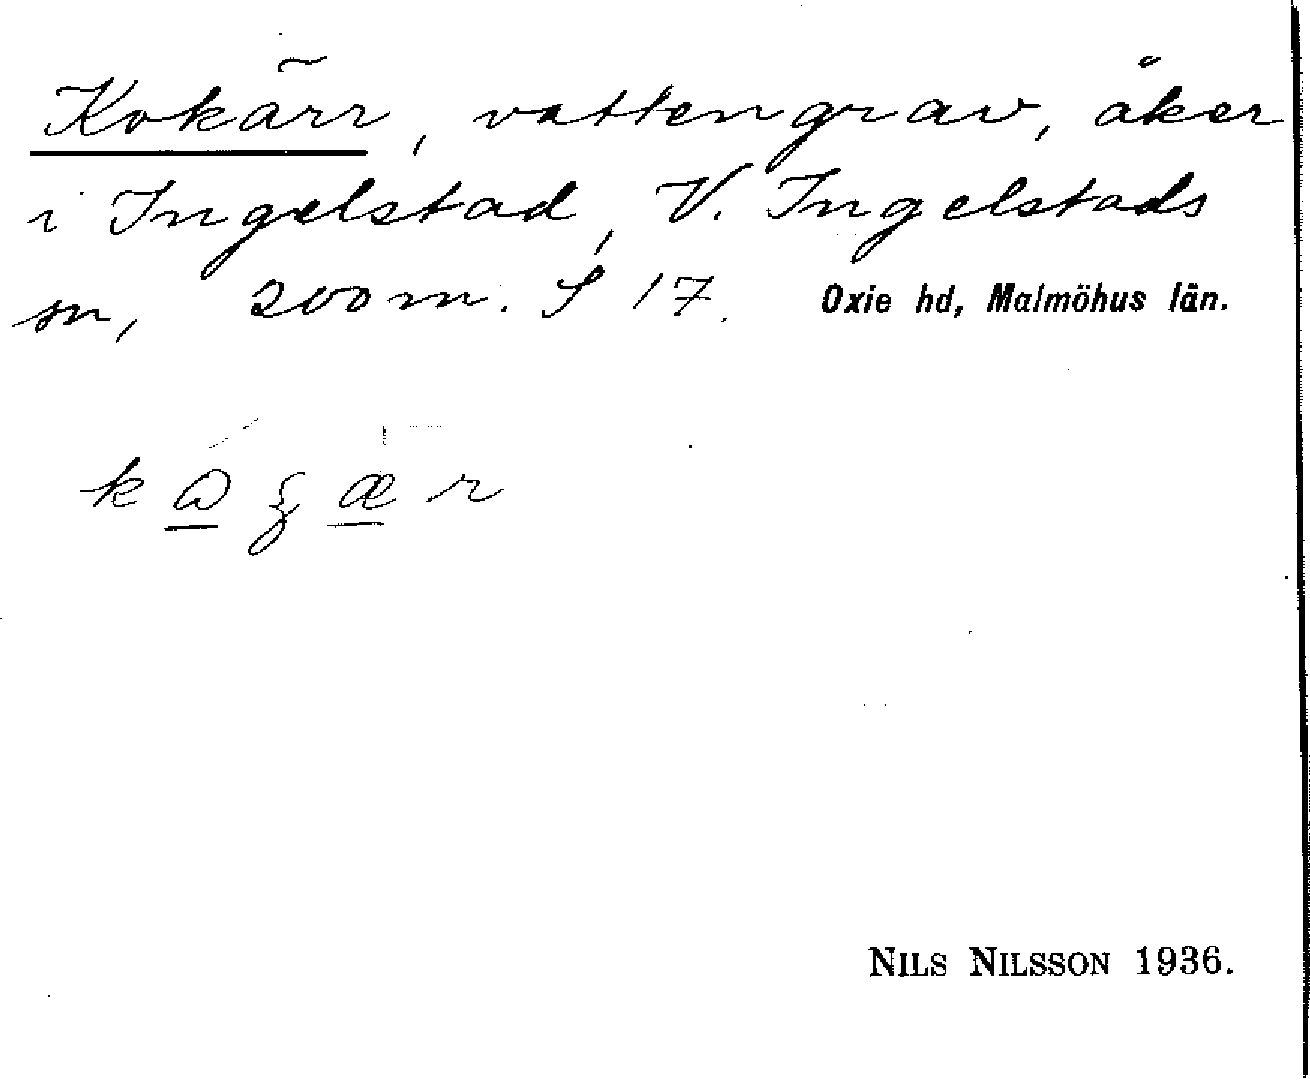 Kokärr, vattengrav, åker
i Ingelstad, V. Ingelstads
sn, 200 m. S 17. Oxie hd, Malmöhus län.
NILS NILSSON 1936.